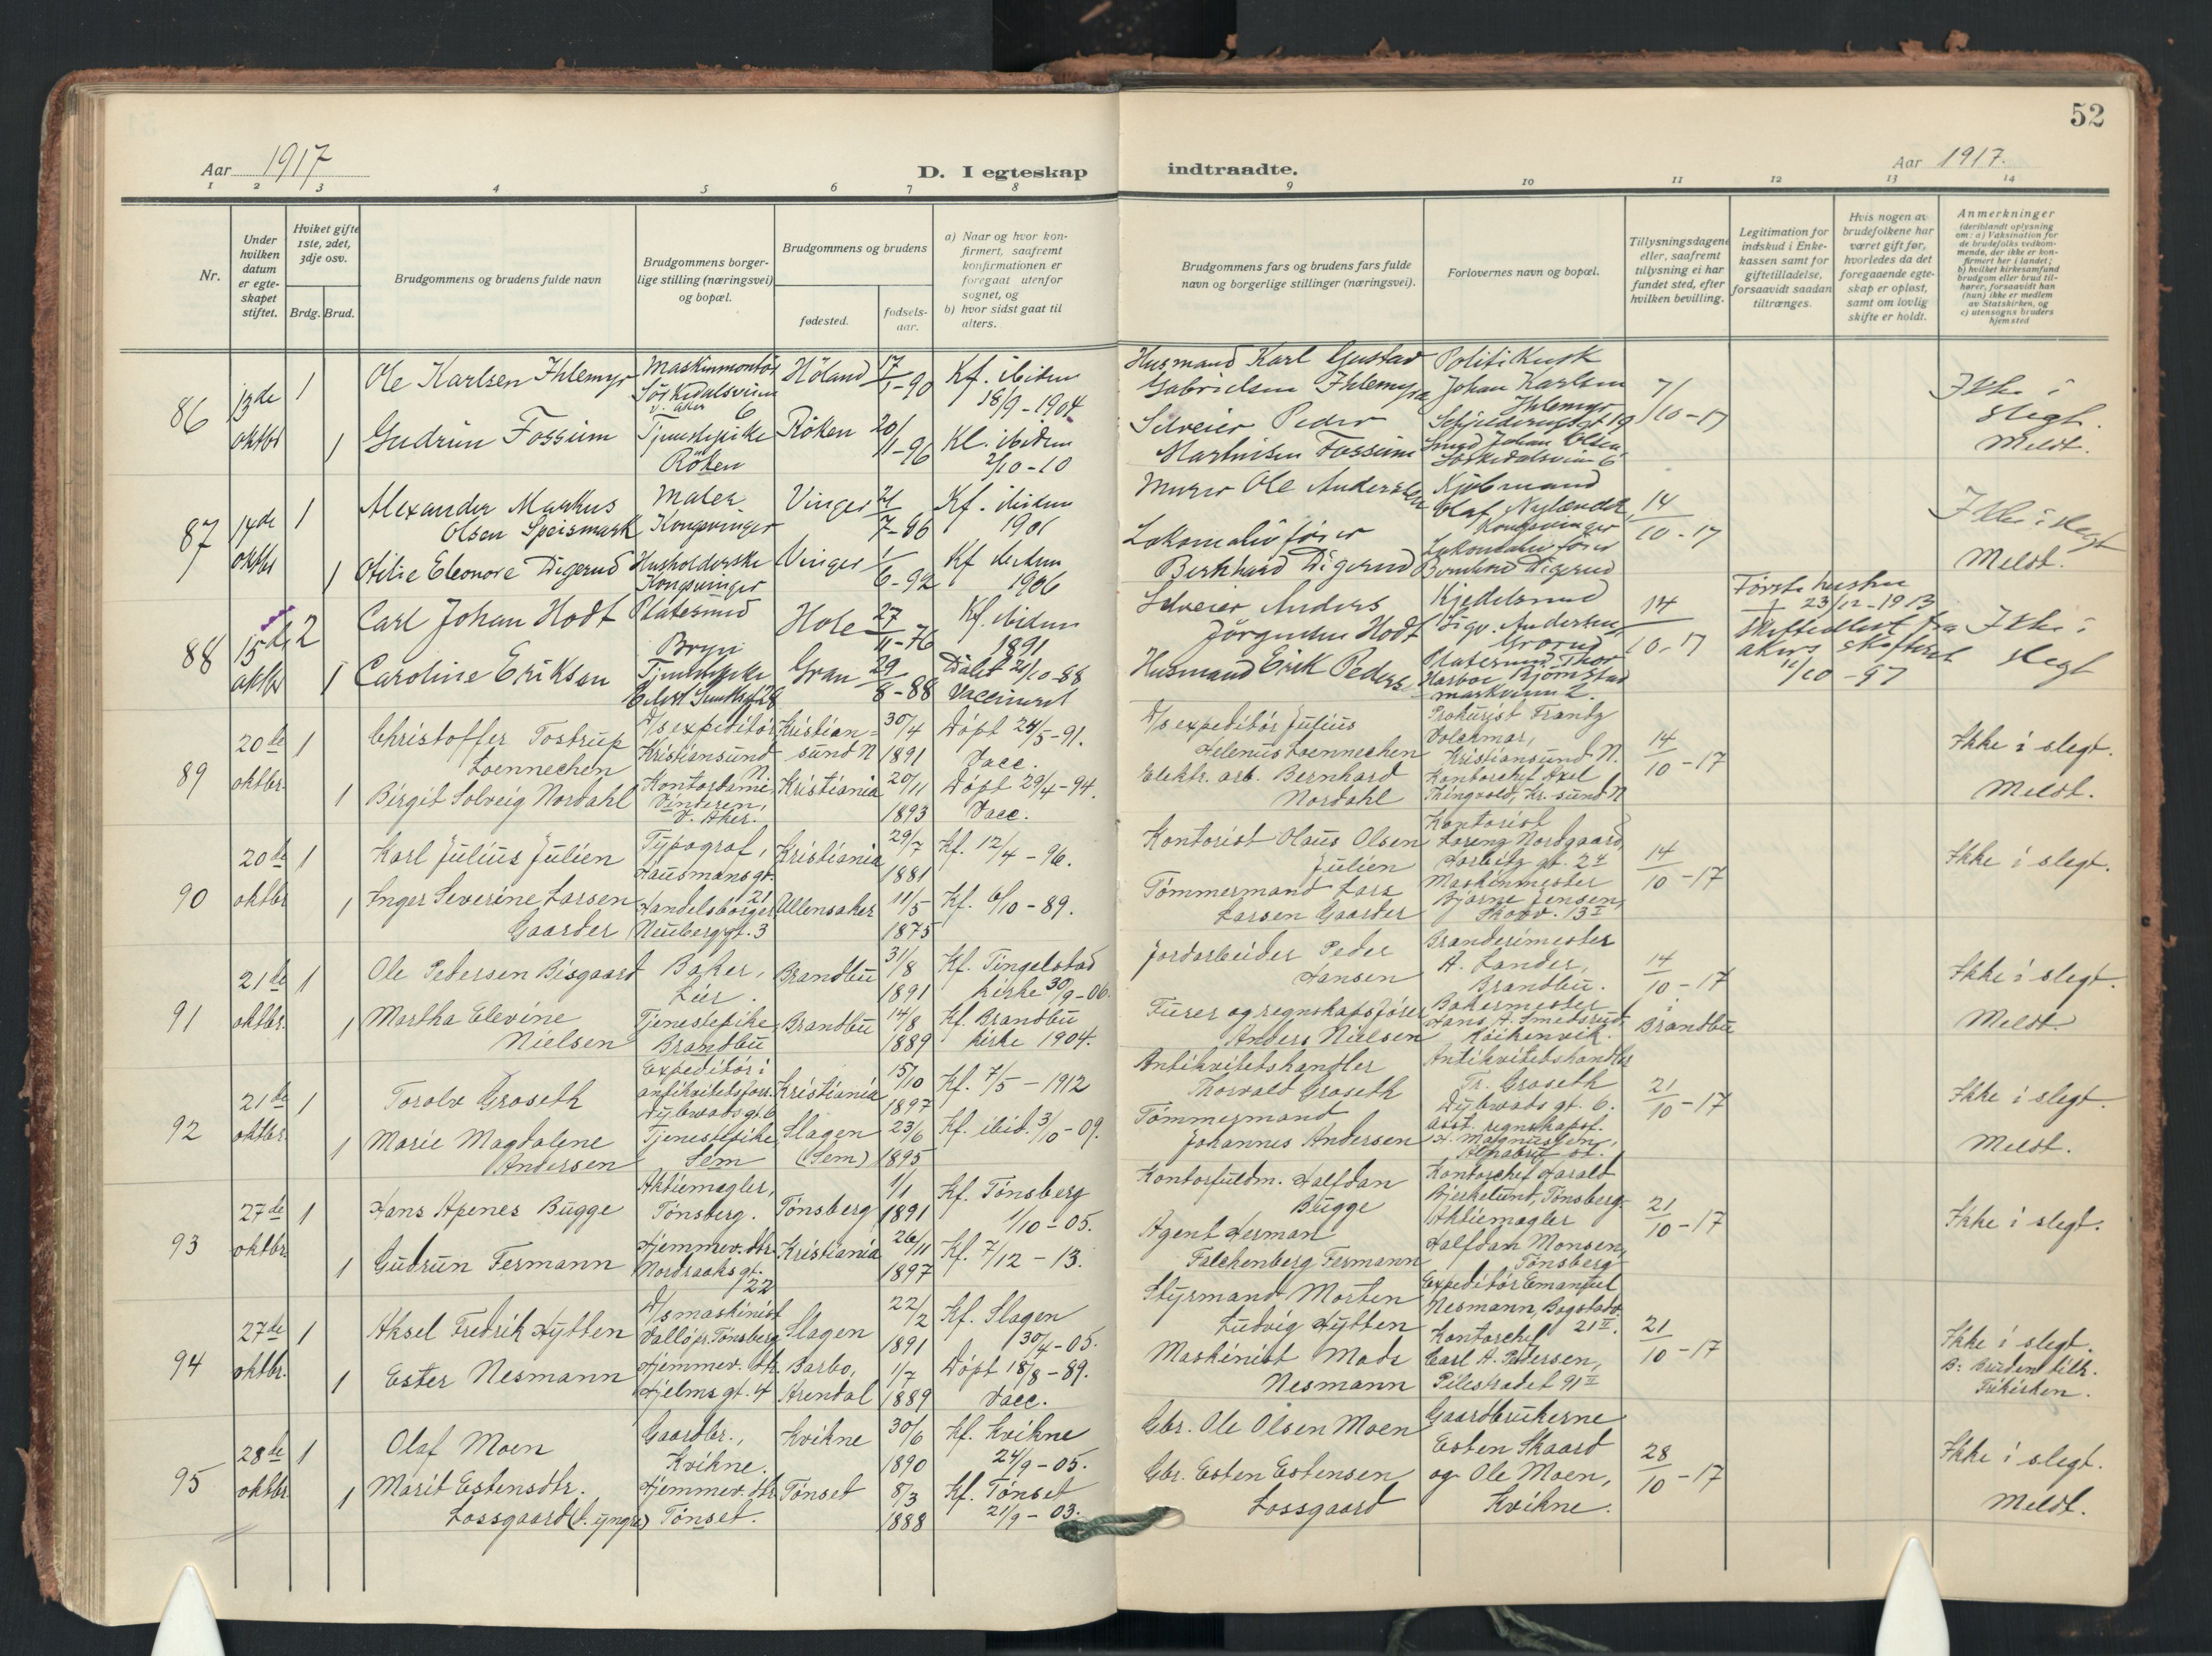 52
Aar 1917
D. I egteskap indtraadte.
Aar 1917.
1 2 3 4 5 6 7 8 9 10 11 12 13 14
Nr.
Under hvilken datum er egteskapet stiftet.
Hvilket gifte 1ste, 2det, 3dje osv.
Brdg. Brud.
Brudgommens og brudens fulde navn
Brudgommens borger-
lige stilling (næringsvei)
og bopæl.
Brudgommens og brudens
fødested.
fødsels-
aar.
a) Naar og hvor kon-
firmert, saafremt
konfirmationen er
foregaat utenfor
sognet, og
b) hvor sidst gaat til
alters.
Brudgommens fars og brudens fars fulde
navn og borgerlige stillinger (næringsvei).
Forlovernes navn og bopæl.
Tillysningsdagene
eller, saafremt
tillysning ei har
fundet sted, efter
hvilken bevilling.
Legitimation for
indskud i Enke-
kassen samt for
giftetilladelse,
forsaavidt saadan
tiltrænges.
Hvis nogen av
brudefolkene har
været gift før,
hvorledes da det
foregaaende egte-
skap er opløst,
samt om lovlig
skifte er holdt.
Anmerkninger
(deriblandt oplysning
om: a) Vaksination for
de brudefolks vedkom-
mende, der ikke er kon-
firmert her i landet;
b) hvilket kirkesamfund
brudgom eller brud til-
hører, forsaavidt han
(hun) ikke er medlem
av Statskirken, og
c) utensogns bruders
hjemsted
86
13de
oktbr
1
Ole Karlsen Ihlemyr
Maskinmontør
Sørkedalsveien
v. Aker 6
Høland
17/1-90
Kf. ibidem
18/9-1904
Husmand Karl Gustav
Gabrielsen Ihlemyra
Politikusk
Johan Karlsen
Ihlemyr
19
7/10-17
Ikke i
slegt.
Meldt.
1
Gudrun Fossum
Tjenestepike
Røken
Røken
20/11-96
Kf. ibidem
2/10-10
Selveier Peder
Martinsen Fossum
Smed Johan Olsen,
Sørkedalsveien 6
87
14de
oktbr
1
Alexander Markus
Olsen Speismark
Maler
Kongsvinger
Vinger
2/7-86
Kf. ibidem
1901
Murer Ole Andersen
Kjøbmand
Olaf Nylænder,
Kongsvinger
14/10-17
Ikke i slegt
Meldt.
1
Otilie Eleonore Digerud
Husholderske
Kongsvinger
Vinger
1/6-92
Kf ibidem
1906
Lokomotivfører
Bernhard Digerud
Lokomotivfører
Bernhard Digerud
88
15de
oktbr
2
Carl Johan Hodt
Platesmed
Bryn
Hole
27/11-76
Kf. ibidem
1891
Selveier Anders
Jørgensen Hodt
Kjedelsmed
Sigv. Andersen,
Grorud
14/10-17
Første hustru
† 23/12-1913
Skifteattest fra
akers skifteret
11/10-97
Ikke i
slegt
1
Caroline Eriksen
Tjenestepike
Eilert Sundtsgt 28
Gran
29/8-88
Døbt 21/10-88
Vaccinert
Husmand Erik Peders.
Platesmed Thor
89
20de
oktbr.
1
Christoffer Tostrup
Loennechen
D/s expeditør
Kristiansund
N.
Kristian=
sund N
30/4
1891
Døpt 24/5-91.
Vacc.
D/s expeditør Julius
Helenus Loennechen
Prokurist Frantz
Volckmar,
Kristiansund N.
14/10-17
Ikke i slegt.
Meldt.
1
Birgit Solveig Nordahl
Kontordame
Vinderen,
V. Aker.
Kristiania
20/11
1893
Døpt 29/4-94.
Vacc.
Elektr. arb. Bernhard
Nordahl
Kontorchef Axel
Thingvold, Kr.sund N
90
20de
oktbr
1
Karl Julius Julien
Typograf,
Hausmansgt.
21
Kristiania
29/7
1881
Kf. 12/4-96.
Kontorist Olaus Olsen
Julien
Kontorist
Lorens Nordgaard,
Herbitz gt. 24
14/10-17
Ikke i slegt.
1
Inger Severine Larsen
Gaarder
Handelsborger
Neuberggt. 3
Ullensaker
11/5
1875
Kf. 6/10-89.
Tømmermand Lars
Larsen Gaarder
Maskinmester
Bjarne Jensen,
Skovv. 13 II
91
21de
oktbr.
1
Ole Pedersen Bisgaard
Baker,
Lier.
Brandbu
31/8
1891
Kf. Tingelstad
kirke 30/9-06.
Jordarbeider Peder
Hansen
Branderimester
A. Lander,
Brandbu.
14/10-17
i
Brandbu
Ikke i slegt.
Meldt.
1
Martha Elevine
Nielsen
Tjenestepike
Brandbu
Brandbu
14/8
1889
Kf. Brandbu
kirke 1904.
Furer og regnskapsfører
Anders Nielsen
Bakermester
Hans A. Smedsrud,
Røikenvik.
92
21de
oktbr.
1
Torolv Groseth
Expeditør i
antikvitetsforr.
Dybwadsgt. 6
Kristiania
15/10
1897
Kf. 7/5-1912
Antikvitetshandler
Thorvald Groseth
Antikvitetshandler
Tr. Groseth
Dybwads gt. 6.
21/10-17
Ikke i slegt.
Meldt.
1
Marie Magdalene
Andersen
Tjenestepike
Sem
Slagen
(Sem)
23/6
1895
Kf. ibid. 3/10-09.
Tømmermand
Johannes Andersen
Asst. regnskapsf.
H. Magnussen,
93
27de
oktbr.
1
Hans Apenes Bugge
Aktiemægler,
Tønsberg.
Tønsberg
1/1
1891
Kf. Tønsberg
1/10-05.
Kontorfuldm. Halfdan
Bugge
Kontorchef Harald
Bjerkelund, Tønsberg
21/10-17
Ikke i slegt.
1
Gudrun Fermann
Hjemmev. dtr.
Nordraaksgt.
22
Kristiania
26/11
1897
Kf. 7/12-13.
Agent Herman
Falchenberg Fermann
Aktiemægler
Halfdan Monsen,
Tønsberg
94
27de
oktbr.
1
Aksel Fredrik Hytten
D/s maskinist
Valløpr. Tønsberg
Slagen
22/2
1891
Kf. Slagen
30/4-05.
Styrmand Morten
Ludvig Hytten
Expeditør Emanuel
Nesmann, Bogstadv.
21 II.
21/10-17
Ikke i slegt.
B: Bruden tilh.
Frikirken.
1
Ester Nesmann
Hjemmev. dtr.
Hjelms gt. 4
Barbo,
Arendal
1/7
1889
Døpt 18/8-89.
Vacc.
Maskinist Mads
Nesmann
Kontorchef
Carl A. Pettersen,
Pilestrædet 91 II
95
28de
oktbr.
1
Olaf Moen
Gaardbr.,
Kvikne.
Kvikne
30/6
1890
Kf. Kvikne
24/9-05.
Gbr. Ole Olsen Moen
Gaardbrukerne
Esten Skaard
og Ole Moen,
Kvikne.
28/10-17
Ikke i slegt.
Meldt.
1
Marit Estensdtr.
Lossgaard (d. yngre)
Hjemmev. dtr
Tønset.
Tønset
8/3
1888
Kf. Tønset
21/9-03.
Gbr. Esten Estensen
Lossgaard